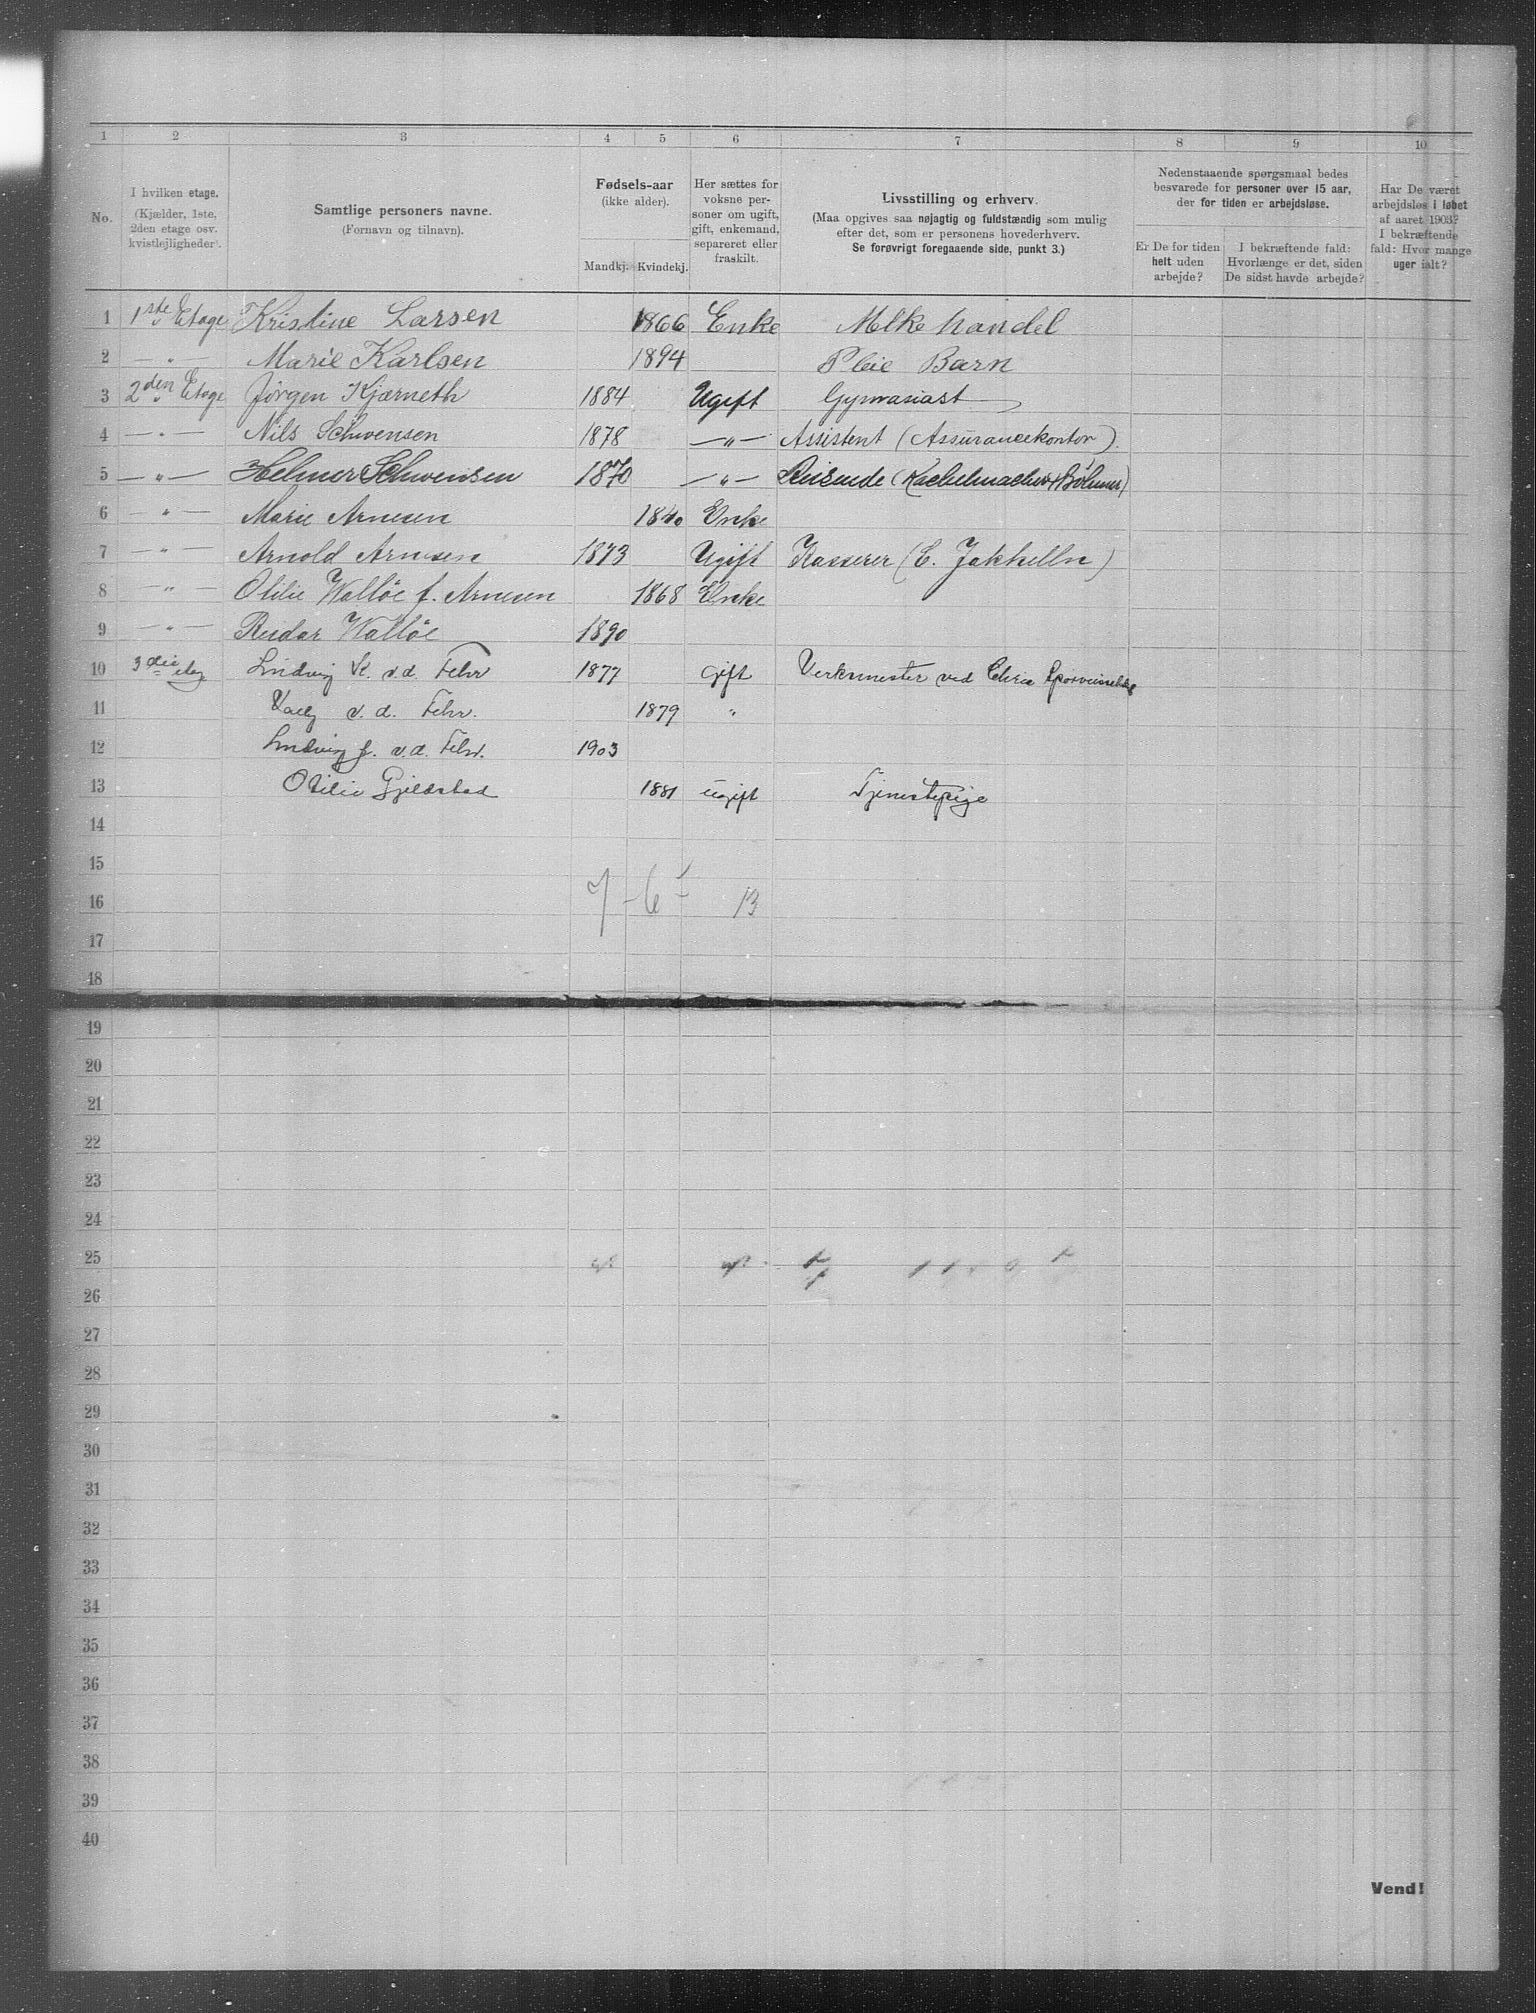 1 2 3 4 5 6 7 8 9 10
No.
I hvilken etage.
(Kjælder, 1ste,
2den etage osv.
kvistlejligheder).
Samtlige personers navne.
(Fornavn og tilnavn).
Fødsels-aar
(ikke alder).
Mandkj. Kvindekj.
Her sættes for
voksne per-
soner om ugift,
gift, enkemand,
separeret eller
fraskilt.
Livsstilling og erhverv.
(Maa opgives saa nøjagtig og fuldstændig som mulig
efter det, som er personens hovederhverv.
Se forøvrigt foregaaende side, punkt 3.)
Nedenstaaende spørgsmaal bedes
besvarede for personer over 15 aar,
der for tiden er arbejdsløse.
Er De for tiden
helt uden
arbejde?
I bekræftende fald:
Hvorlænge er det, siden
De sidst havde arbejde?
Har De været
arbejdsløs i løbet
af aaret 1903?
I bekræftende
fald: Hvor mange
uger ialt?
1 1ste Etage Kristine Larsen 1866 Enke Melkehandel
2 — " — Marie Karlsen 1894 Pleie Barn
3 2den Etage Jørgen Kjærneth 1884 Ugift Gymnasiast
4 — " — Nils Schwensen 1878 — " — Assistent (Assurancekontor).
5 — " — Helmer Schwensen 1870 — " — Reisende (Kachelmacher Bøhmer)
6 — " — Marie Arnesen 1840 Enke
7 — " — Arnold Arnesen 1873 Ugift Kasserer (E. Jakhelln)
8 — " — Otilie Walløe f. Arnesen 1868 Enke
9 — " — Reidar Walløe 1890
10 3die etag Ludvig K. v.d. Fehr 1877 gift Verksmester ved Chria Sporveisselskab
11 v. d. Fehr. 1879 "
12 Ludvig f. v.d. Fehr. 1903
13 Otilie Gjeldstad 1881 ugift Tjenestepige
14
15
16 7 - 6 - 13
17
18
19
20
21
22
23
24
25
26
27
28
29
30
31
32
33
34
35
36
37
38
39
40
Vend!